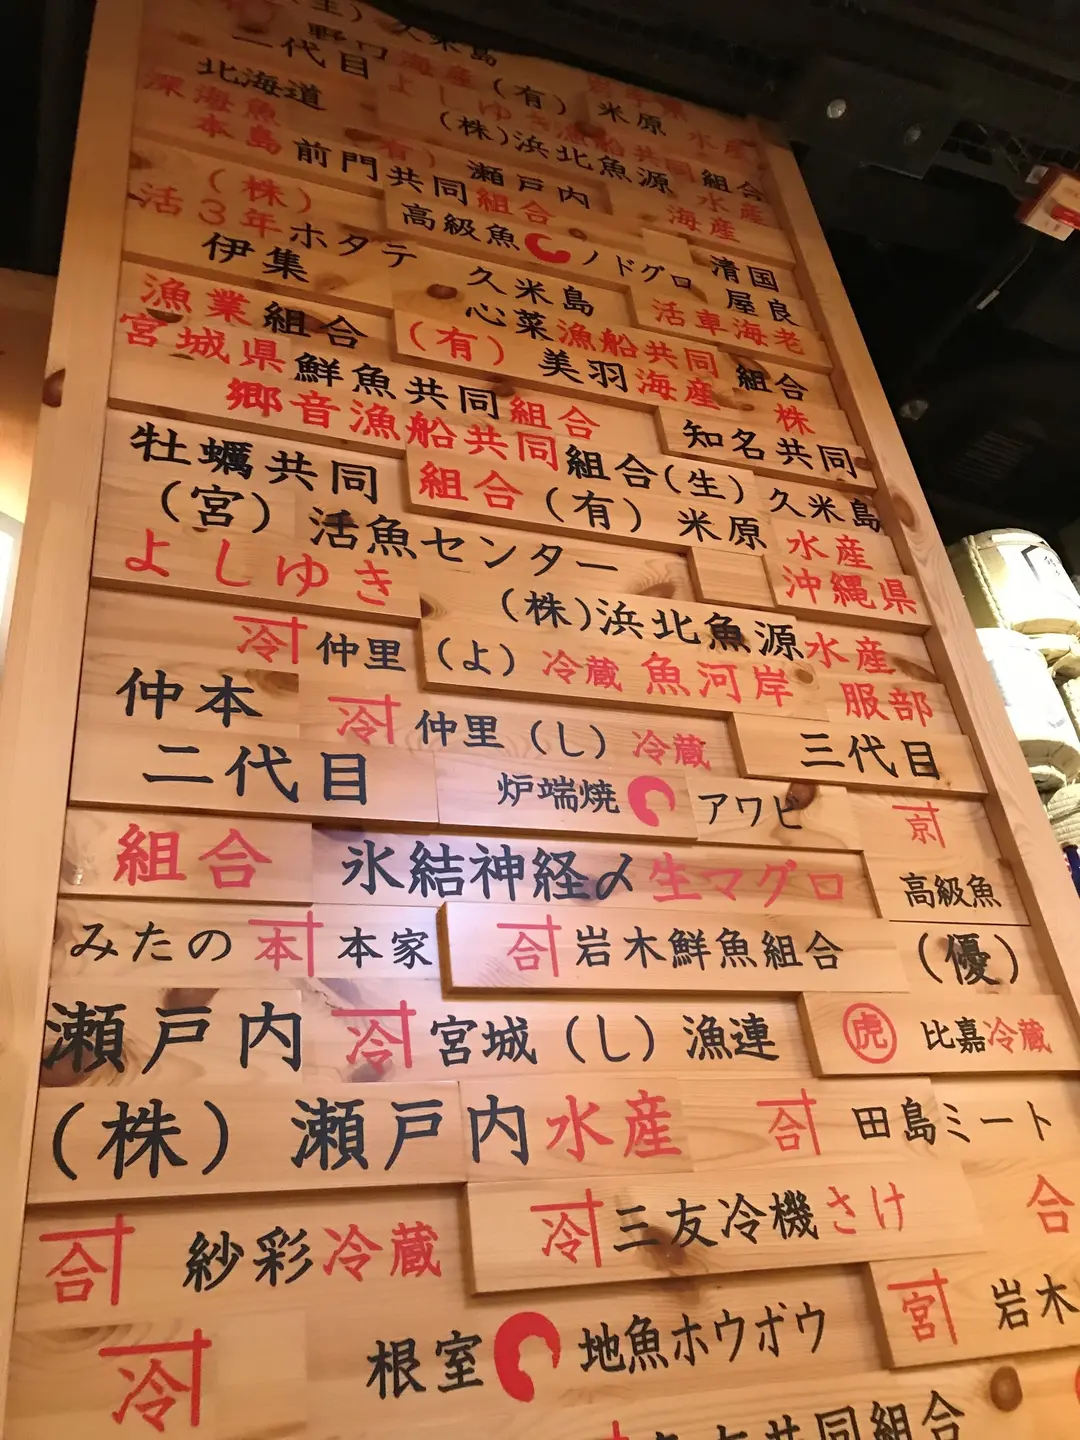 (生) 久米島
野口海産
二代目 よしゆき漁船共同組合
(有) 米原 水産
北海道
(株)浜北魚源 水産
深海魚
本島 前門共同組合
(有) 瀬戸内 海産
(株)
活3年ホタテ
高級魚 ノドグロ 清国
伊集 久米島 屋良
心菜漁船共同組合 活車海老
漁業組合 (有) 美羽海産 株
宮城県鮮魚共同組合 知名共同
郷音漁船共同組合(生) 久米島
牡蠣共同組合 (有) 米原 水産
(宮) 活魚センター 沖縄県
よしゆき (株)浜北魚源水産
冷 仲里 (よ) 冷蔵 魚河岸 服部
仲本 冷 仲里 (し) 冷蔵 三代目
二代目 炉端焼 アワビ 京
組合 氷結神経〆生マグロ 高級魚
みたの 本 本家 合 岩木鮮魚組合 (優)
瀬戸内 冷 宮城 (し) 漁連 虎 比嘉冷蔵
(株) 瀬戸内水産 合 田島ミート
合 紗彩冷蔵 冷 三友冷機さけ 合
冷 根室 地魚ホウボウ 宮 岩木
共同組合